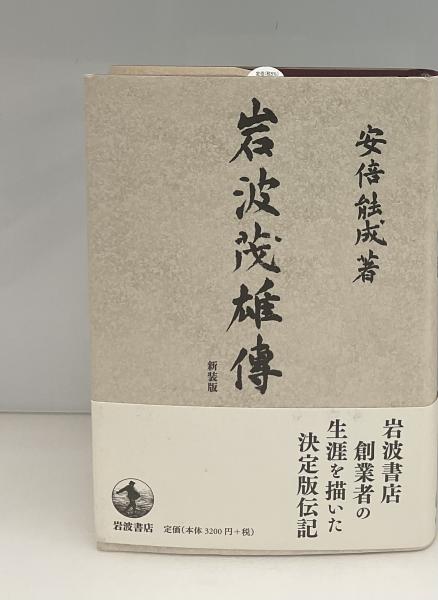 岩波茂雄傳
新装版
安倍能成著
岩波書店
創業者の
生涯を描いた
決定版伝記
岩波書店
定価(本体3200円+税)